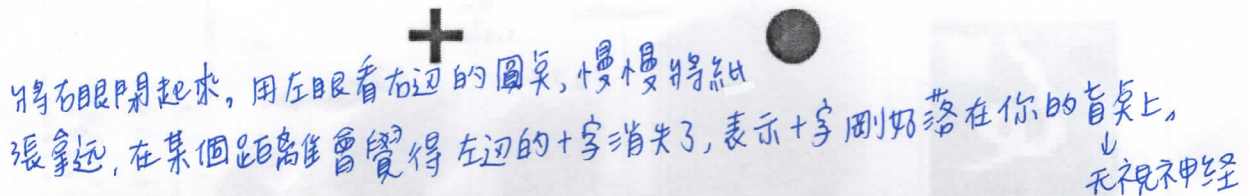 將右眼閉起來，用左眼看右边的圓点，慢慢將紙
張拿远，在某個距離會覺得左边的十字消失了，表示十字剛好落在你的盲点上。
↓
无視神经